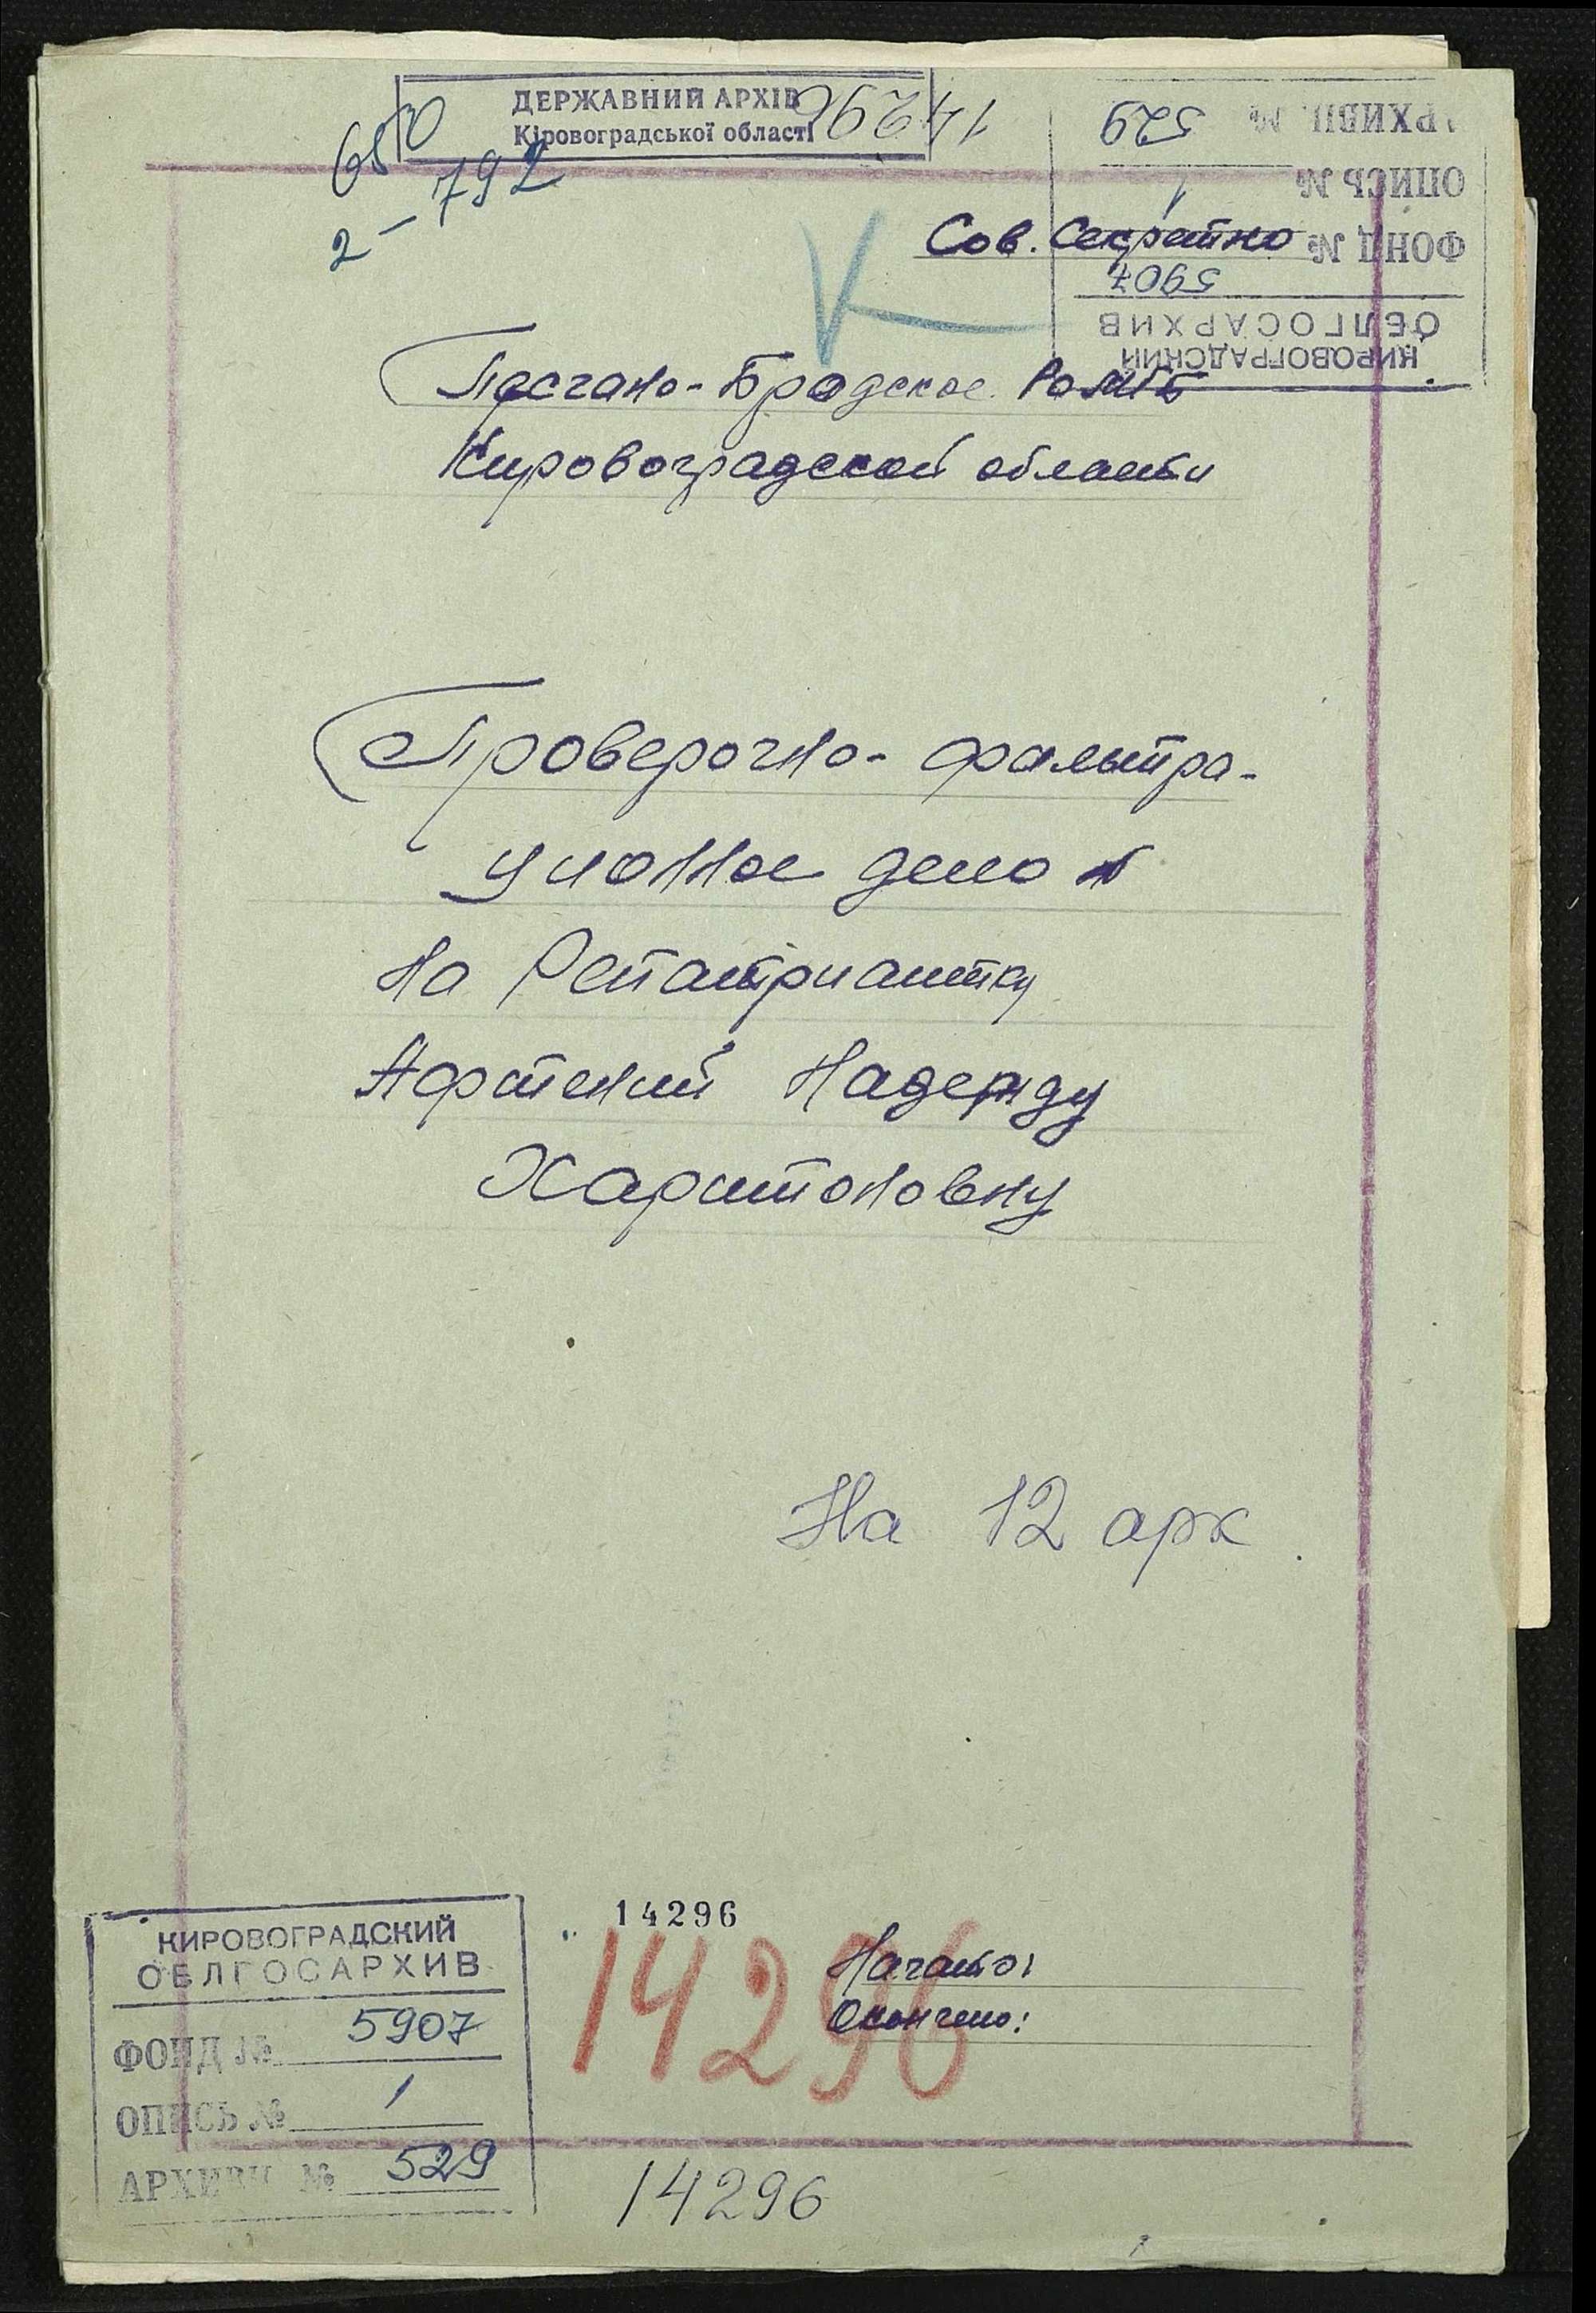 ДЕРЖАВНИЙ АРХІВ
Кіровоградської області
14296
650
2-792
АРХИВН. № 529
ОПИСЬ № 1
ФОНД № 5907
КИРОВОГРАДСКИЙ
ОБЛГОСАРХИВ
Сов. Секретно
Песчано-Бродское РоМГБ
Кировоградской области
Проверочно-фильтра-
ционное дело №
на Репатриантку
Афтений Надежду
Харитоновну
На 12 арк
КИРОВОГРАДСКИЙ
ОБЛГОСАРХИВ
ФОНД № 5907
ОПИСЬ № 1
АРХИВН № 529
14296
14296
Начато:
Окончено:
14296